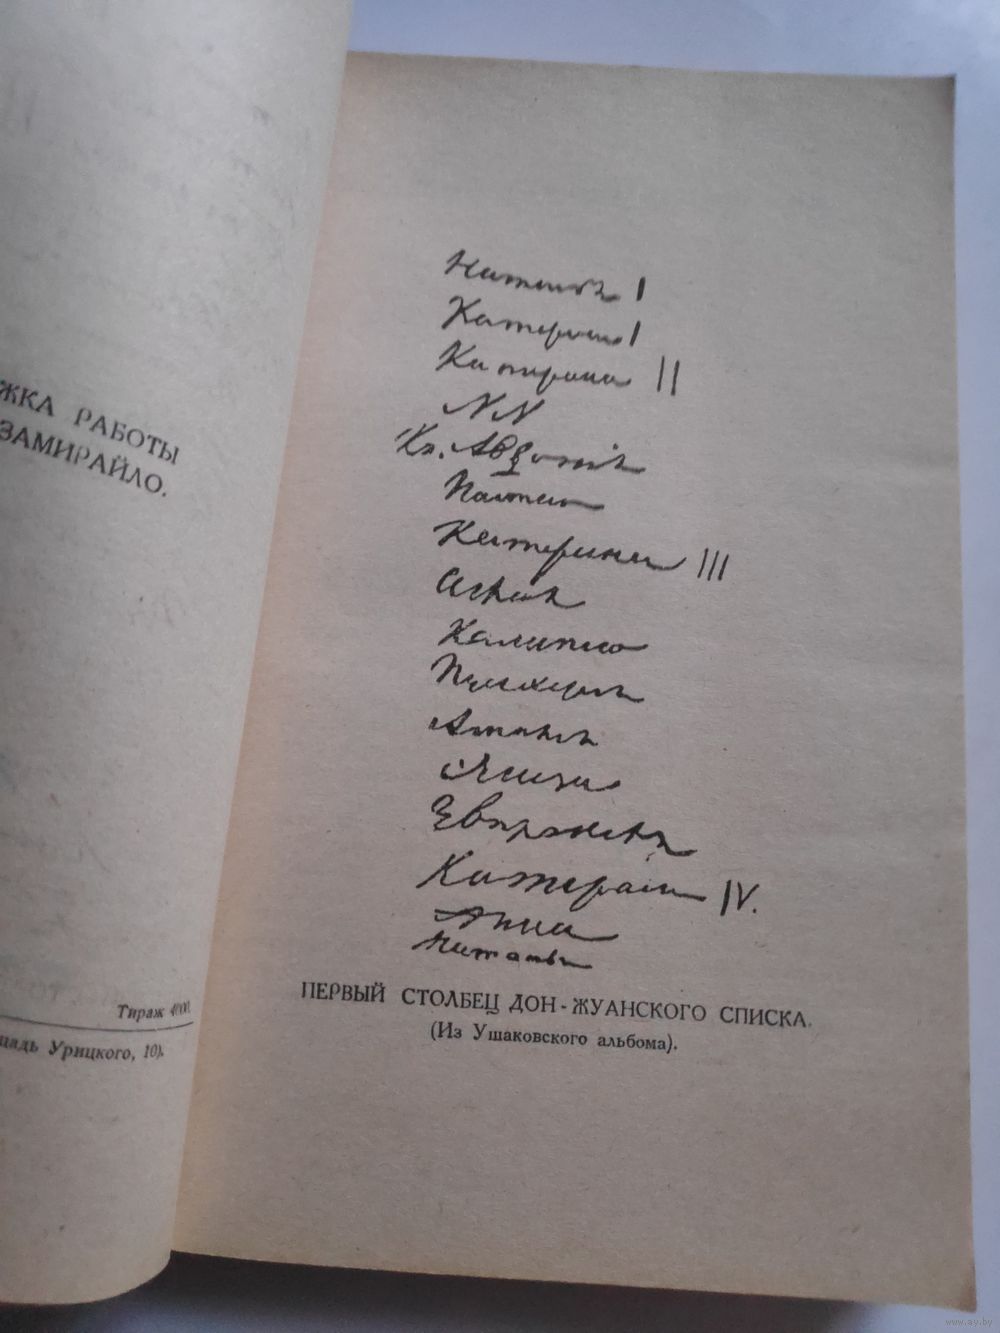 ЖКА РАБОТЫ
ЗАМИРАЙЛО.
Тираж 4000.
щадь Урицкого, 10).
Наталья I
Катерина I
Катерина II
NN
Кн. Авдотия
Настасья
Катерина III
Аглая
Калипсо
Пулхерия
Амалия
Элиза
Евпраксея
Катерина IV.
Анна
Наталья
ПЕРВЫЙ СТОЛБЕЦ ДОН-ЖУАНСКОГО СПИСКА.
(Из Ушаковского альбома).
www.ay.by